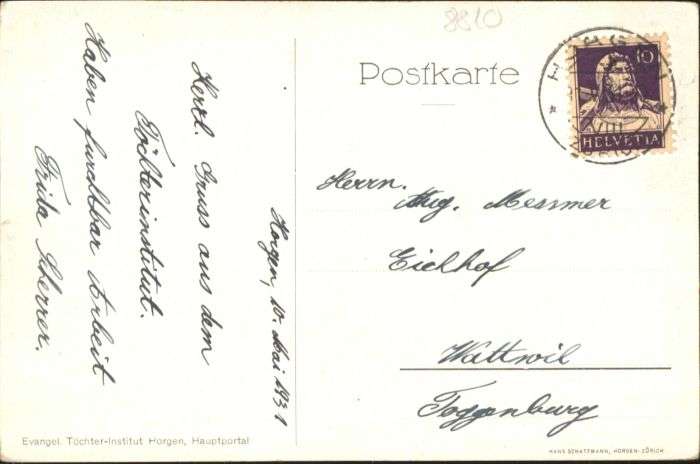 8810
Postkarte
10
HELVETIA
HORGEN
VIII
Horgen, 10. Mai 1931
Herzl. Gruss aus dem
Töchterinstitut.
Haben furchtbar Arbeit
Frida Scherrer.
Herrn.
Aug. Messmer
Eichhof
Wattwil
Toggenburg
Evangel. Töchter-Institut Horgen, Hauptportal
HANS SCHATZMANN, HORGEN-ZÜRICH